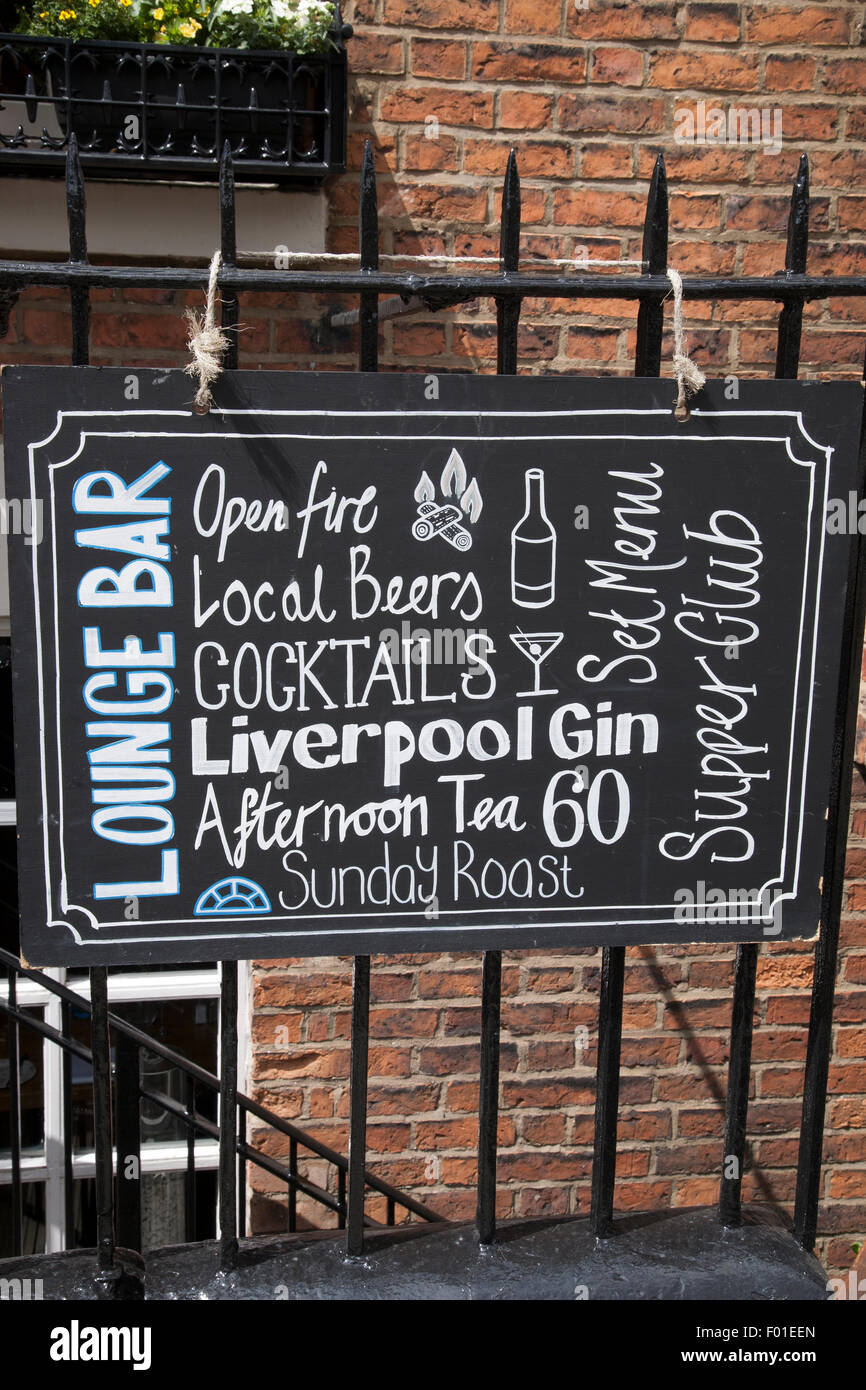 LOUNGE BAR
Open fire
Local Beers
COCKTAILS
Liverpool Gin
Afternoon Tea 60
Sunday Roast
Set Menu
Supper Club
alamy
Image ID: F01EEN
www.alamy.com